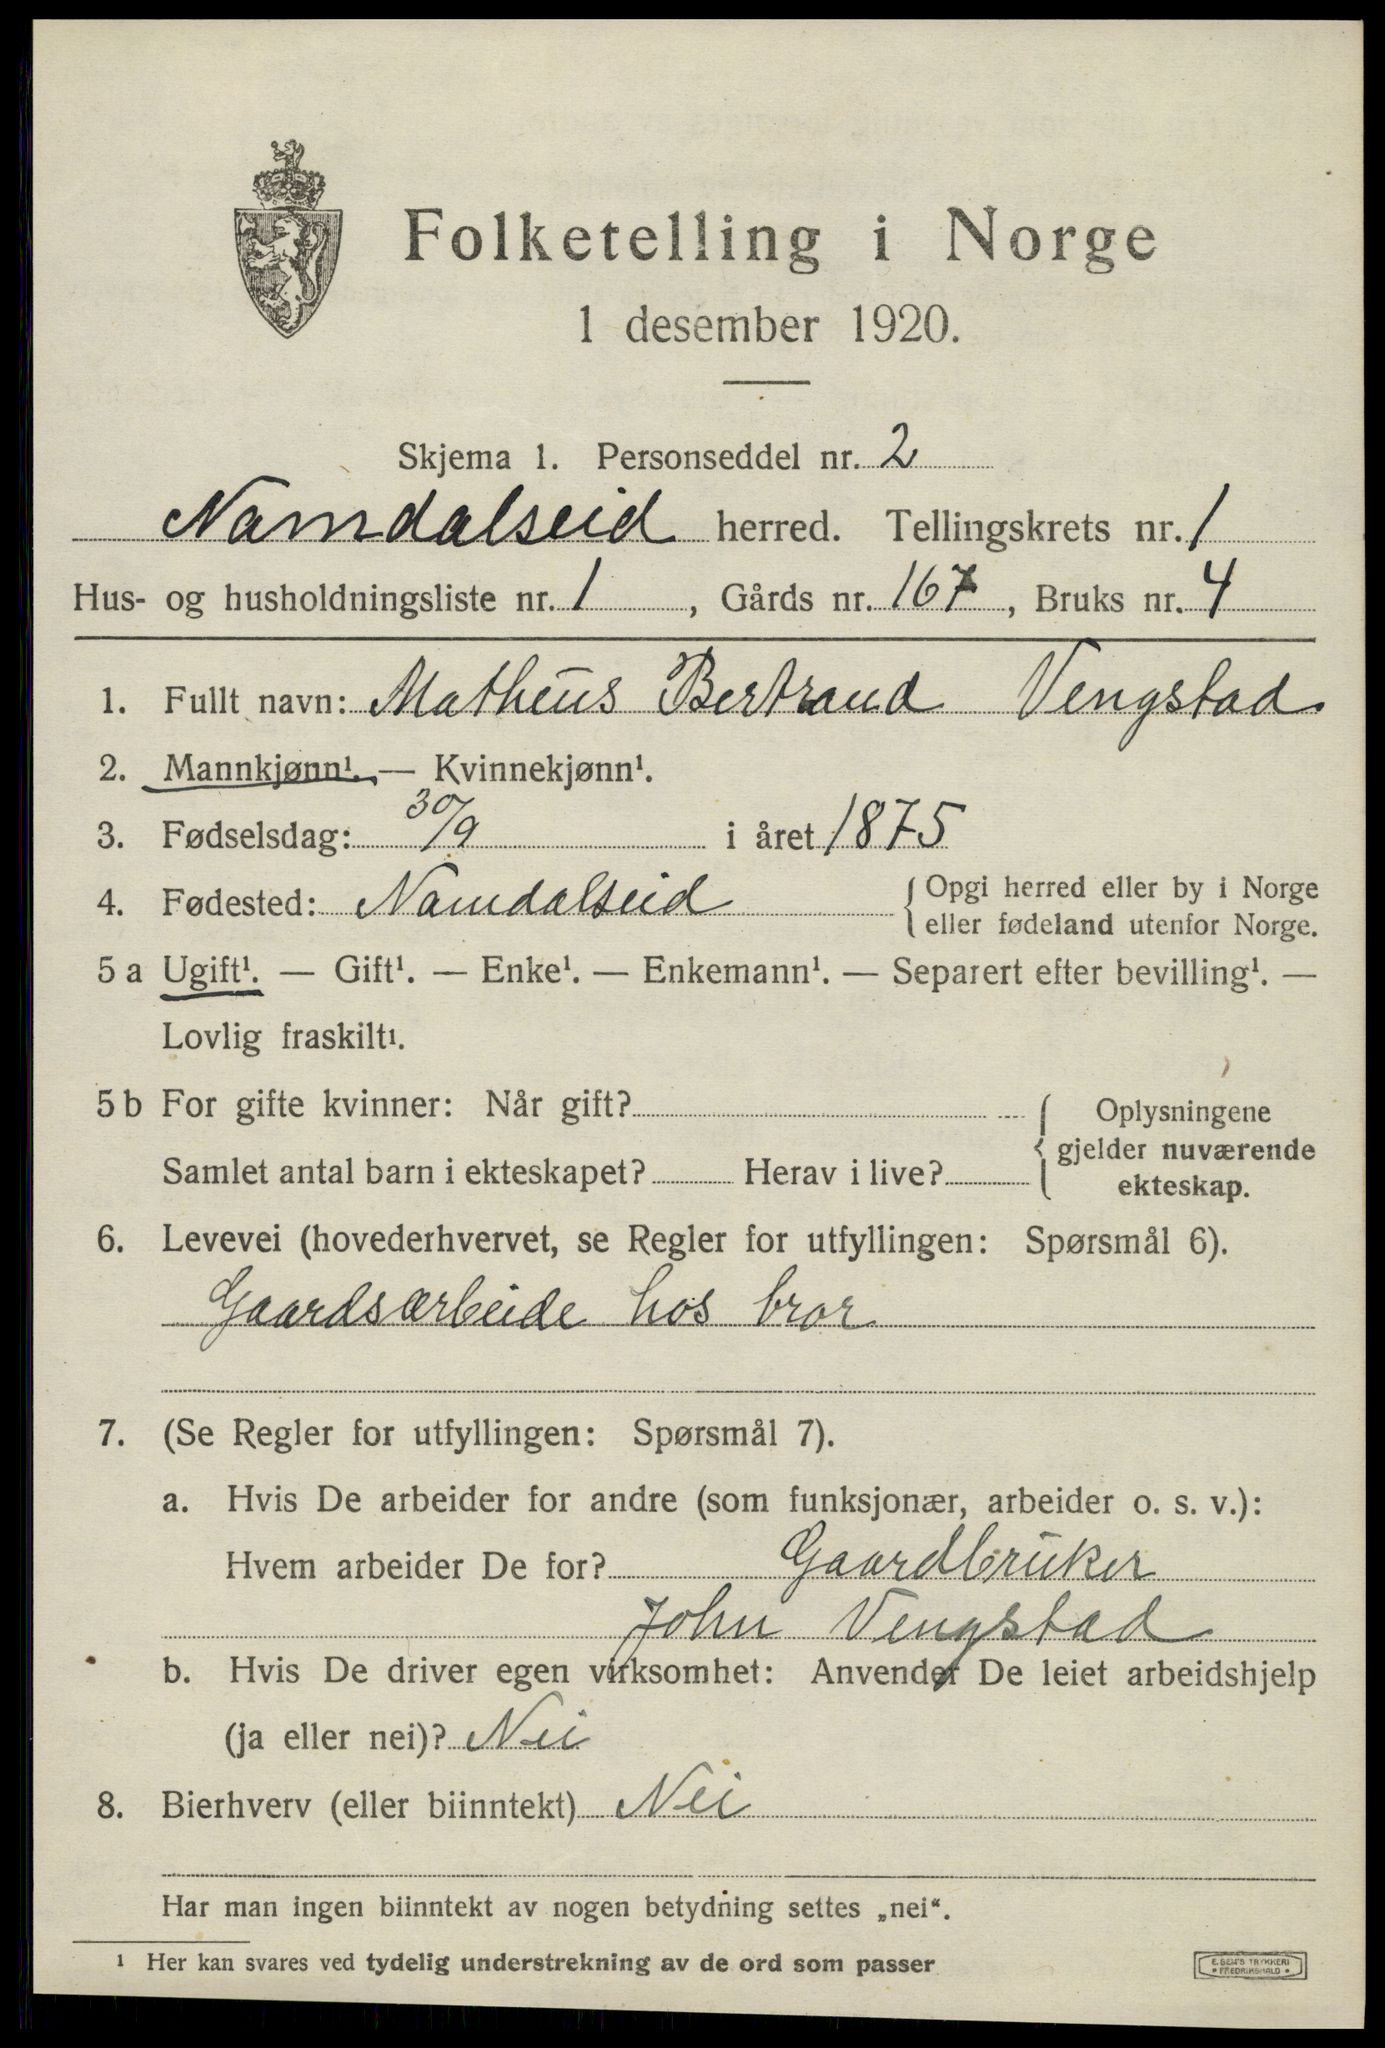 Folketelling i Norge
1 desember 1920.
Skjema 1. Personseddel nr. 2
Namdalseid herred. Tellingskrets nr. 1
Hus- og husholdningsliste nr. 1, Gårds nr. 167, Bruks nr. 4
1. Fullt navn: Matheus Bertrand Vengstad
2. Mannkjønn¹. — Kvinnekjønn¹.
3. Fødselsdag: 30/9 i året 1875
4. Fødested: Namdalseid { Opgi herred eller by i Norge
eller fødeland utenfor Norge.
5 a Ugift¹. — Gift¹. — Enke¹. — Enkemann¹. — Separert efter bevilling¹. —
Lovlig fraskilt¹.
5 b For gifte kvinner: Når gift? { Oplysningene
gjelder nuværende
Samlet antal barn i ekteskapet? Herav i live?
ekteskap.
6. Levevei (hovederhvervet, se Regler for utfyllingen: Spørsmål 6).
Gaardsarbeide hos bror
7. (Se Regler for utfyllingen: Spørsmål 7).
a. Hvis De arbeider for andre (som funksjonær, arbeider o. s. v.):
Hvem arbeider De for? Gaardbruker
John Vengstad
b. Hvis De driver egen virksomhet: Anvender De leiet arbeidshjelp
(ja eller nei)? Nei
8. Bierhverv (eller biinntekt) Nei
Har man ingen biinntekt av nogen betydning settes „nei“.
¹ Her kan svares ved tydelig understrekning av de ord som passer
E. SEM'S TRYKKERI
• FREDRIKSHALD •